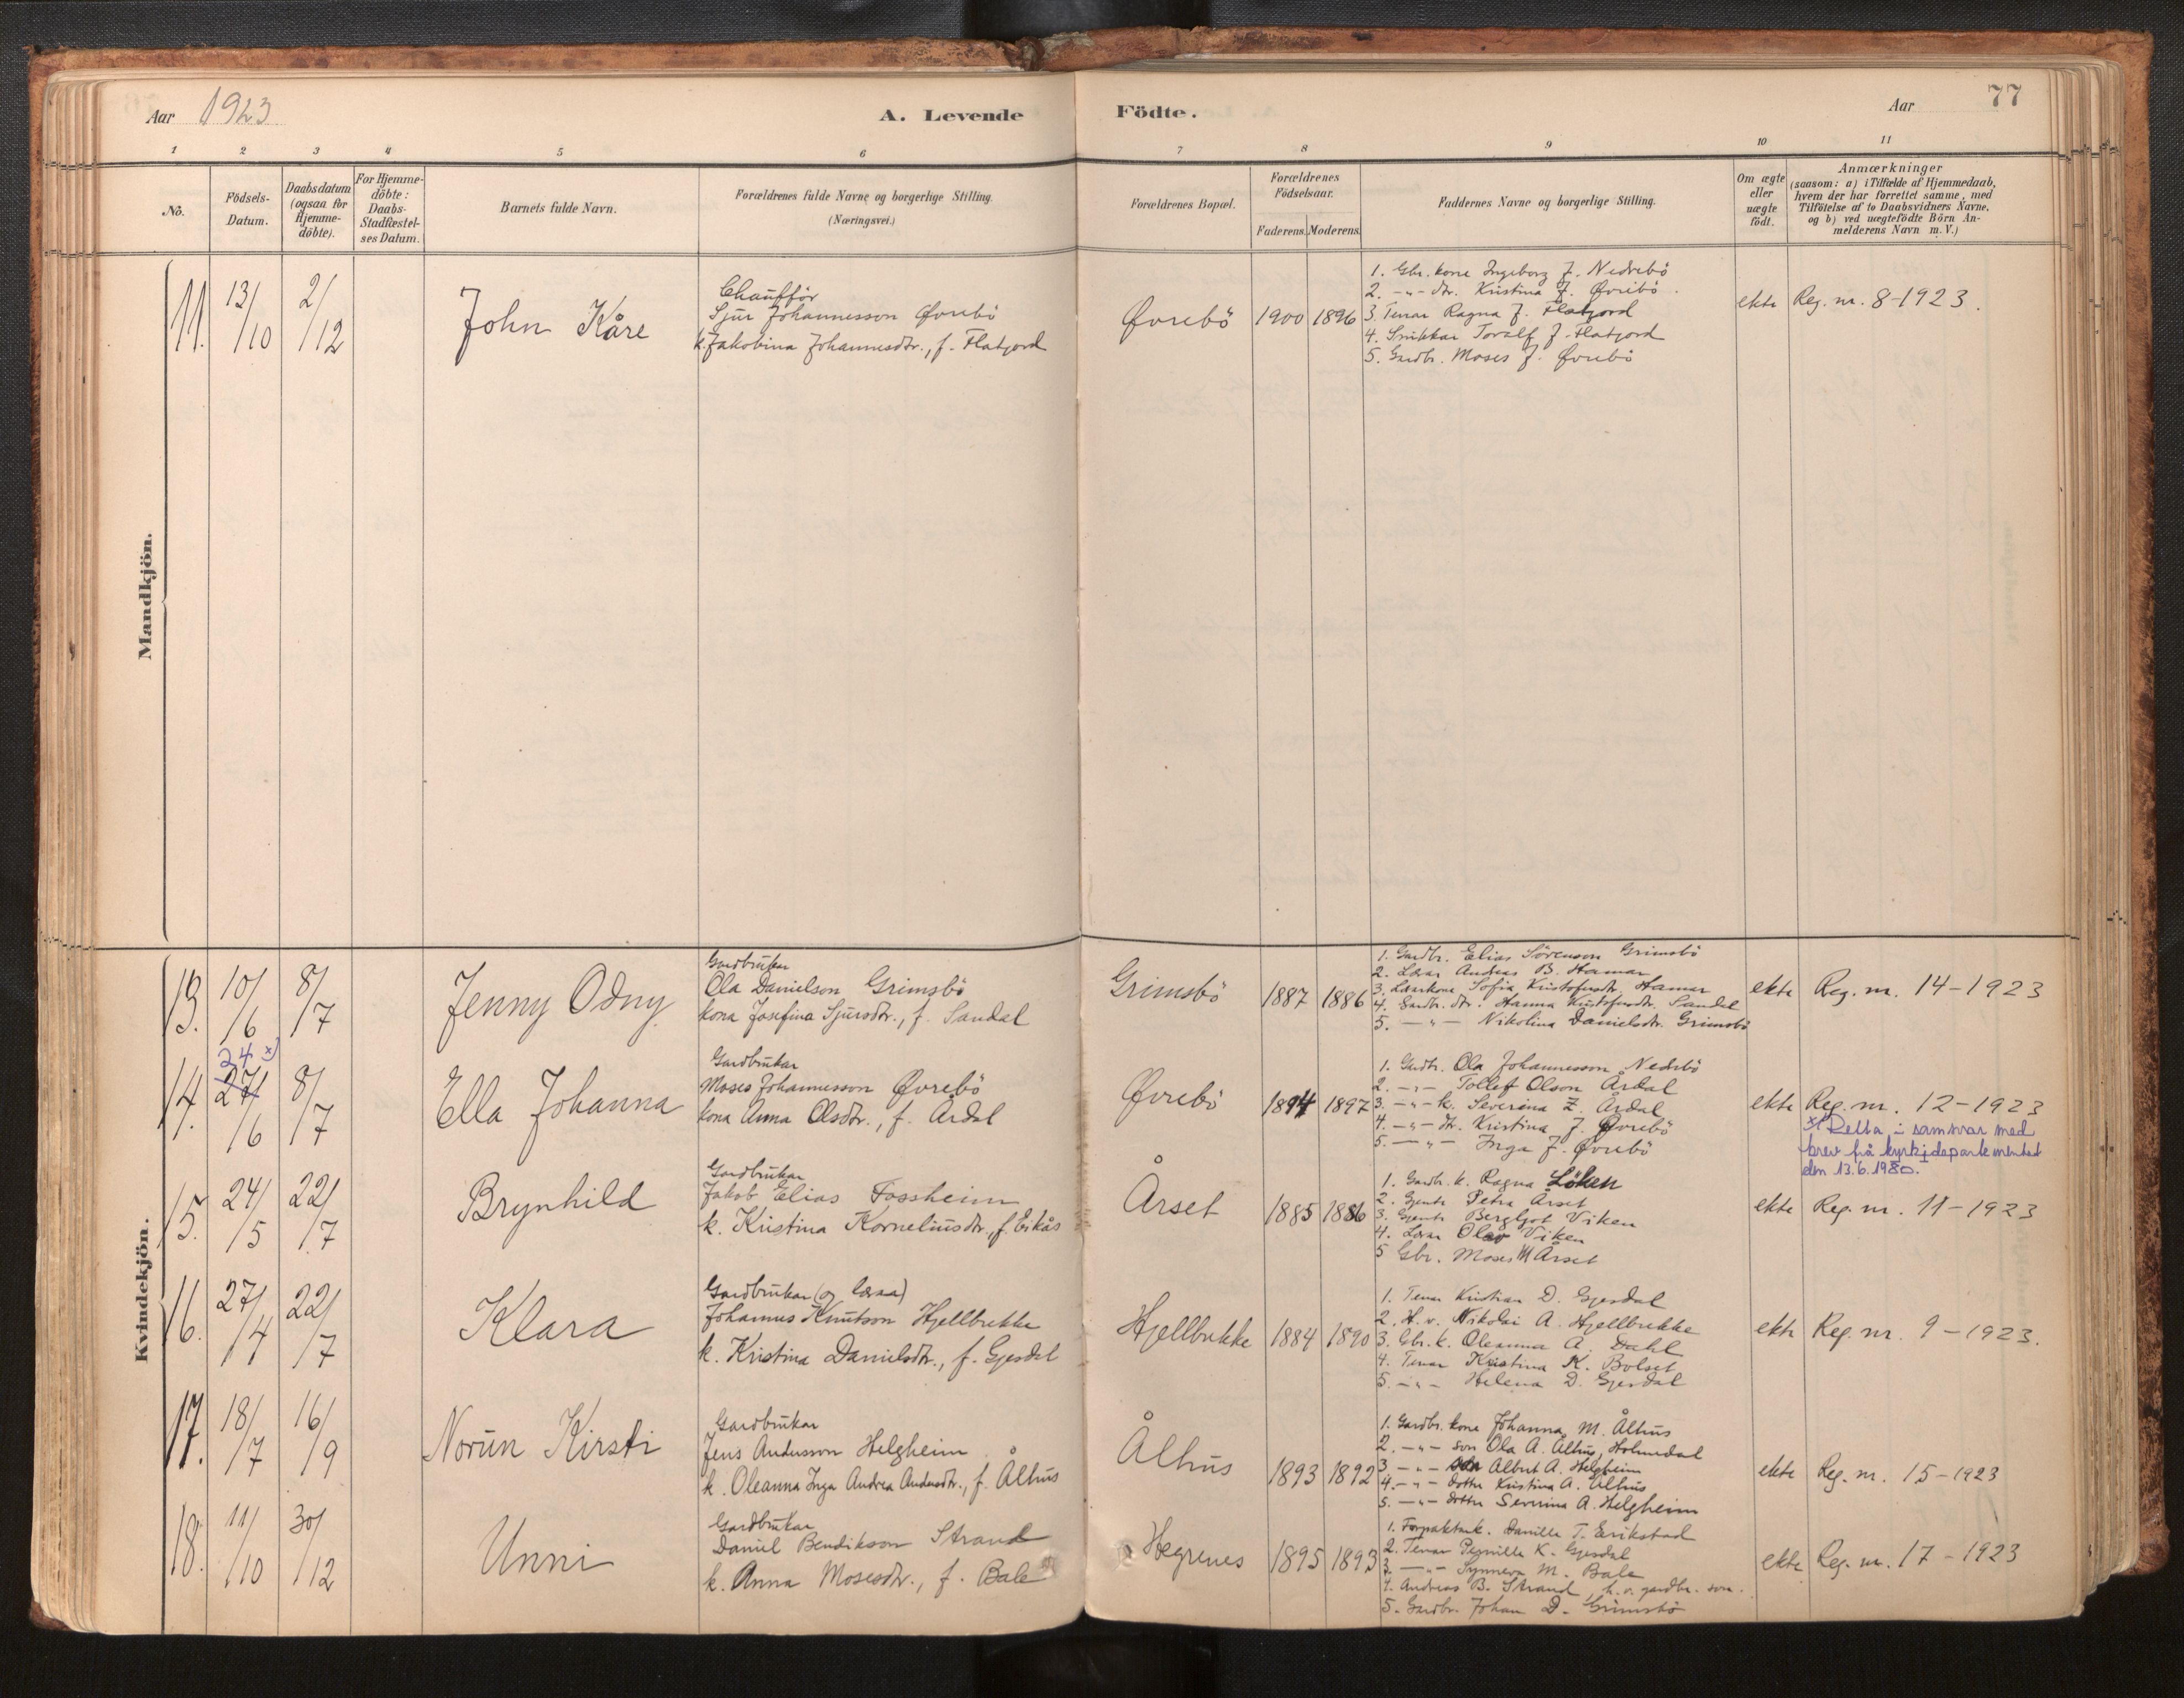 Aar 1923
A. Levende
Födte.
Aar
77
1 2 3 4 5 6 7 8 9 10 11
No.
Födsels-
Datum.
Daabsdatum
(ogsaa for
Hjemme-
döbte).
For Hjemme-
döbte:
Daabs-
Stadfæstel-
ses Datum.
Barnets fulde Navn.
Forældrenes fulde Navne og borgerlige Stilling.
(Næringsvei.)
Forældrenes Bopæl.
Forældrenes
Födselsaar.
Faderens. Moderens.
Faddernes Navne og borgerlige Stilling.
Om ægte
eller
uægte
födt.
Anmærkninger
(saasom: a) i Tilfælde af Hjemmedaab,
hvem der har forrettet samme, med
Tilföielse af to Daabsvidners Navne,
og b) ved uægtefödte Börn An-
melderens Navn m. V.)
Mandkjön.
11. 13/10 2/12
John Kåre
Chaufför
Sjur Johannesson Øvrebö
k. Jakobina Johannesdtr., f. Flatjord
Øvrebö 1900 1896
1. Gbr. kona Ingeborg J. Nedrebö
2. -"- dtr. Kristina J. Øvrebö.
3. Tenar Ragna J. Flatjord
4. Snikkar Toralf J. Flatjord
5. Gardbr. Moses J. Øvrebö
ekte Reg. nr. 8-1923.
Kvindekjön.
13. 10/6 8/7
Jenny Odny
Gardbrukar
Ola Danielson Grimsbö
kona Josefina Sjursdtr., f. Sandal
Grimsbö 1887 1886
1. Gardbr. Elias Sörenson Grimsbö
2. Lærar Andreas B. Hamar
3. Lærarkona Sofia Kristofersdtr. Hamar
4. Gardbr. dtr. Hanna Kristofersdtr. Sandal
5. -"- Nikolina Danielsdtr. Grimsbö
ekte Reg. nr. 14-1923
24 x)
14. 27/6 8/7
Ella Johanna
Gardbrukar
Moses Johannesson Øvrebö
kona Anna Olsdtr., f. Årdal
Øvrebö 1894 1897
1. Gardbr. Ola Johannesson Nedrebö
2. -"- Tollef Olson Årdal
3. -"- k. Severina Z. Årdal
4. -"- dtr. Kristina J. Øvrebö
5. -"- Inga J. Øvrebö
ekte Reg. nr. 12-1923
x) Retta i samsvar med
brev frå kyrkjedepartementet
den 13.6.1980.
15. 24/5 22/7
Brynhild
Gardbrukar
Jakob Elias Fossheim
k. Kristina Korneliusdtr., f. Eikås
Årset 1885 1886
1. Gardbr. k. Ragna Löken
2. Gjente Petra Årset
3. Gjente Bergljot Viken
4. Lærar Olav Viken
5 Gbr. Moses M Årset
ekte Reg. nr. 11-1923
16. 27/4 22/7
Klara
Gardbrukar (og lærar)
Johannes Knutson Hjellbrekke
k. Kristina Danielsdtr., f. Gjesdal
Hjellbrekke 1884 1890
1. Tenar Kristian D. Gjesdal
2. H. v. Nikolai A. Hjellbrekke
3. Gbr. k. Oleanna A. Dahl
4. Tenar Kristina K. Bolset
5. -"- Helena D. Gjesdal
ekte Reg. nr. 9-1923.
17. 18/7 16/9
Norun Kirsti
Gardbrukar
Jens Andersson Helgheim
k. Oleanna Inga Andrea Andersdtr., f. Ålhus
Ålhus 1893 1892
1. Gardbr. kona Johanna M. Ålhus
2. -"- son Ola A. Ålhus, Holmedal
3 -"- son Albert A. Helgheim
4. -"- dotter Kristina A. Ålhus
5. -"- dotter Severina A. Helgheim
ekte Reg. nr. 15-1923
18. 11/10 30/12
Unni
Gardbrukar
Daniel Bendikson Strand
k. Anna Mosesdtr., f. Bale
Hegrenes 1895 1893
1. Forpaktark. Danille T. Erikstad
2. Tenar Pernille K. Gjesdal
3. -"- Synneva M. Bale
4. Andreas B. Strand, h.v. gardbr. son.
5. Gardbr. Johan D. Grimsbö
ekte Reg. nr. 17-1923